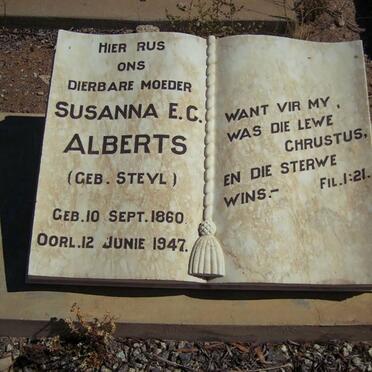 HIER RUS
ONS
DIERBARE MOEDER
SUSANNA E.C.
ALBERTS
(GEB. STEYL)
GEB. 10 SEPT. 1860
OORL. 12 JUNIE 1947.
WANT VIR MY,
WAS DIE LEWE
CHRUSTUS,
EN DIE STERWE
WINS.-
FIL. 1:21.